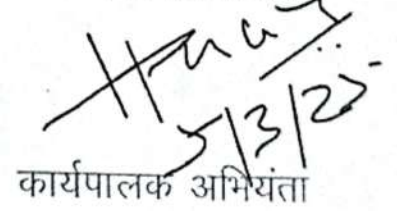 5/3/25
कार्यपालक अभियंता